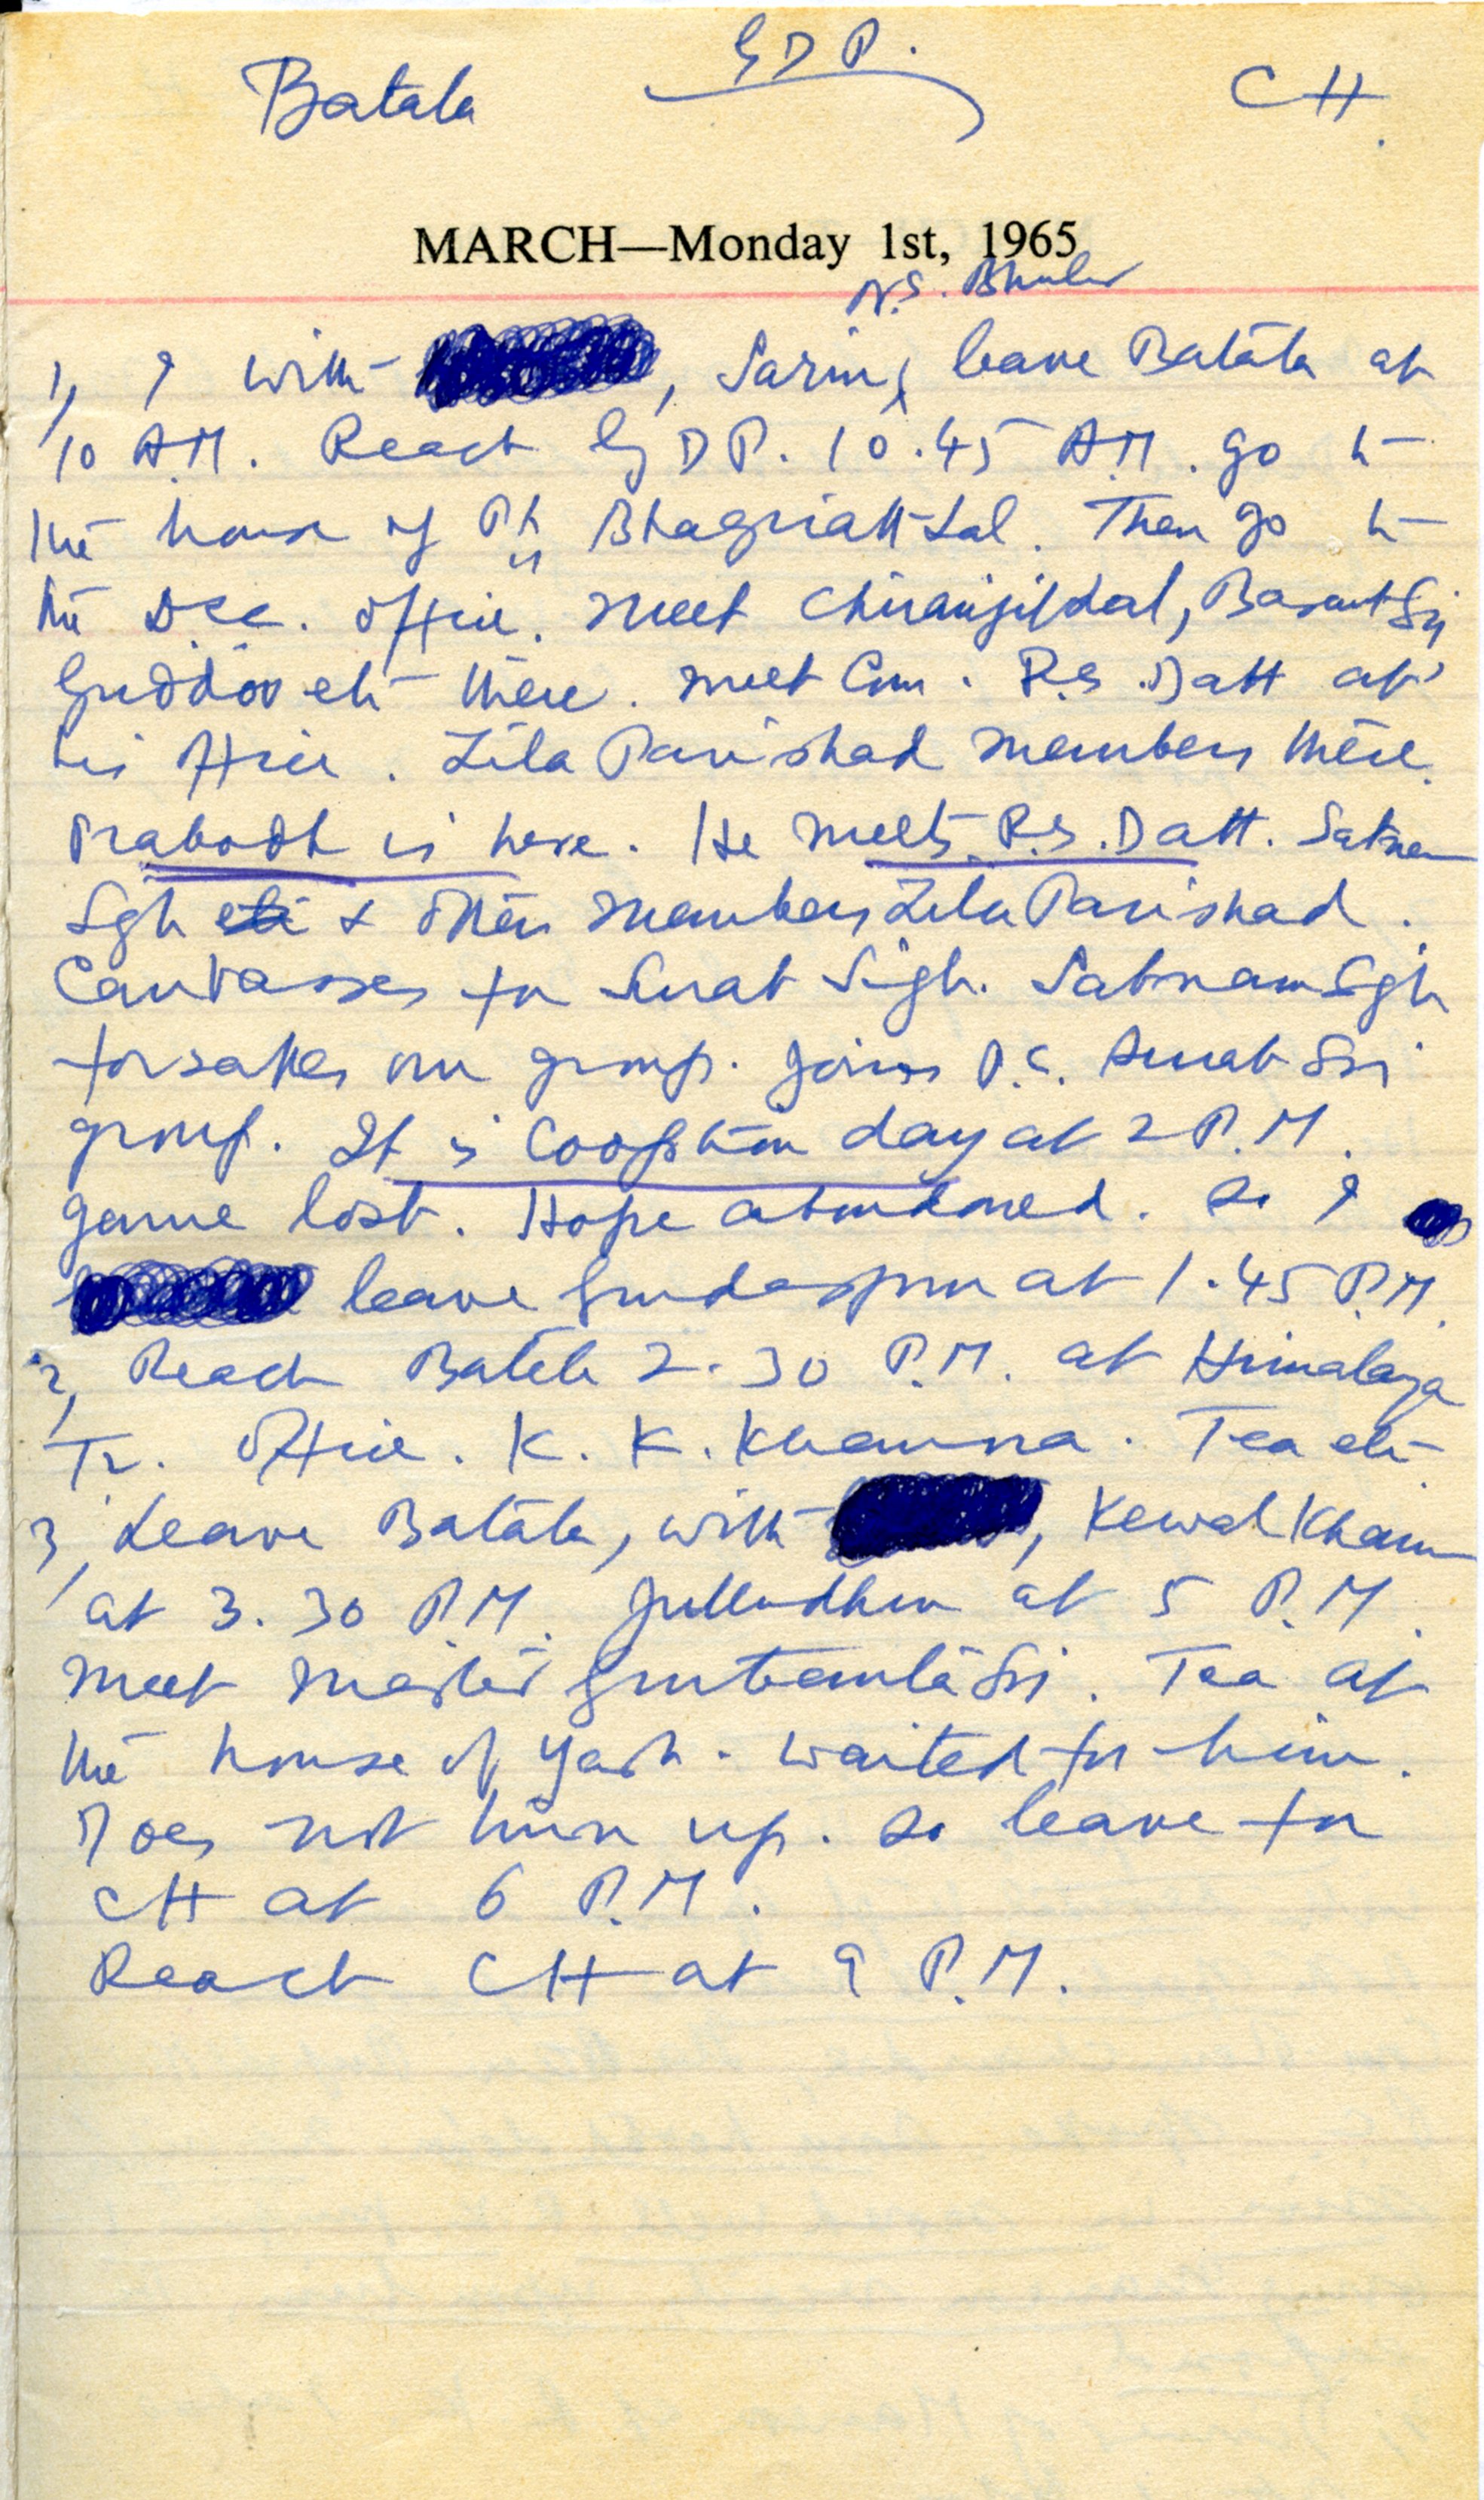 Batala G D P. CH.
MARCH—Monday 1st, 1965
N.S. Bhuler
1, I with , Sarin, leave Batala at
10 A.M. Reach G D P. 10.45 A.M. go to
the house of Pt. Lal. Then go to
the D.C.C. Office. Meet Chiranjit Lal, Basant Sgh
etc there. meet Com. R.S. Datt at
his Office. Zila Parishad members there.
Prabodh is here. He meets R.S. Datt. Satnam
Sgh etc & other members Zila Parishad.
Canvasses for Surat Sigh. Satnam Sgh
forsakes our group. Joins
group. It is Cooption day at 2 P.M.
game lost. Hope abandoned. So I
leave Gurdaspur at 1.45 P.M.
2, Reach Batala 2.30 P.M. at Himalaya
Tr. Office. K. K. Khanna. Tea etc
3, Leave Batala, with , Kewal Khanna
at 3.30 P.M. Jullundhur at 5 P.M.
meet Master Gurbanta Sri. Tea at
the house of Yash. waited for him.
Does not turn up. So leave for
CH at 6 P.M.
Reach CH at 9 P.M.